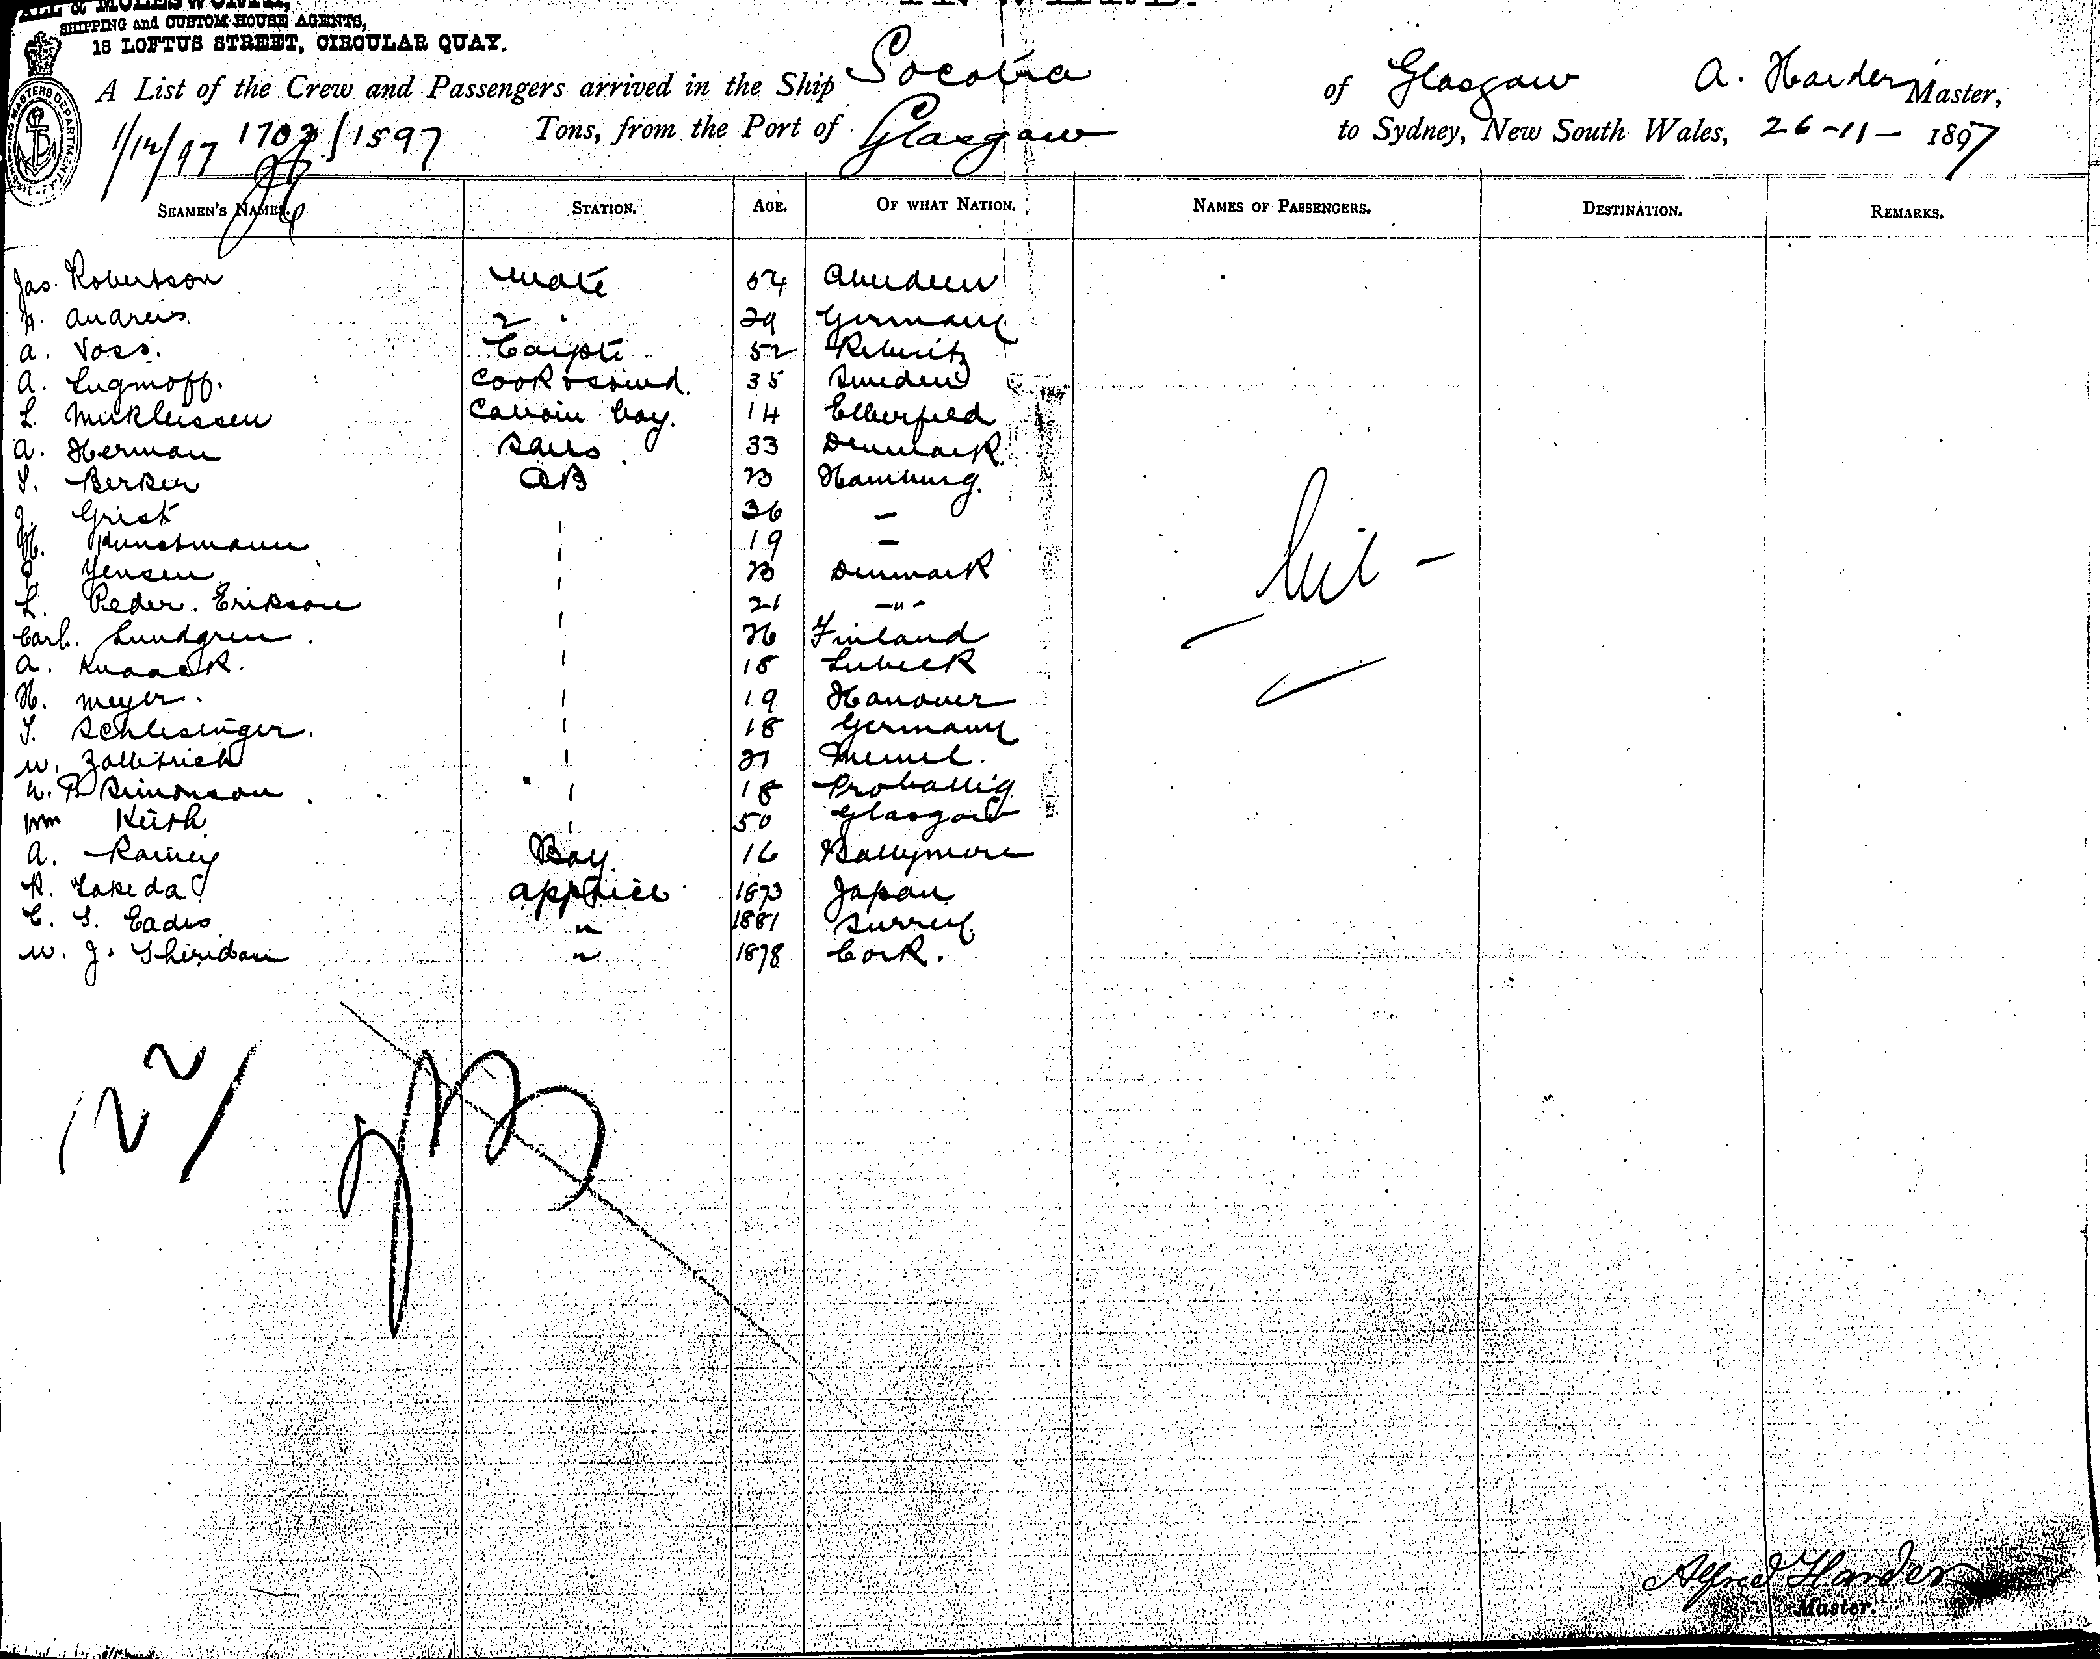 SHIPPING and CUSTOM HOUSE AGENTS,
18 LOFTUS STREET, CIRCULAR QUAY.
A List of the Crew and Passengers arrived in the Ship Socotra of Glasgow A. Harder Master,
1/12/97 1702/1597 Tons, from the Port of Glasgow to Sydney, New South Wales, 26-11-1897
SEAMEN'S NAMES. STATION. AGE. OF WHAT NATION. NAMES OF PASSENGERS. DESTINATION. REMARKS.
Jas. Robertson mate 54 Aberdeen
Andreis 2 " 29 Germany
A. Voss. Carpte 52 Ribnitz
A. Lugmoff. Cook & 35 Sweden
L. Mickleissen Cabin boy. 14 Elberfeld
A. Herman Sails 33 Denmark
Berker AB 23 Hamburg.
J. Grist " 36 -
H. Kunstmann " 19 -
Jensen " 23 Denmark
L. Peder. Erikson " 21 -"-
Carl. Lundgren. " 26 Finland
A. Knaack. " 18 Lubeck
H. Meyer. " 19 Hanover
Schlesinger. " 18 Germany
W. " 27 Memel.
Simonson " 18
Wm Keith " 50 Glasgow
A. Rainey Boy 16 Ballymore
K. Takeda 1873 Japan
C. S. Eadis " 1881 Surrey
W. J. Sheridan " 1878 Cork.
- Nil -
22/
Alfred Harder
Master.